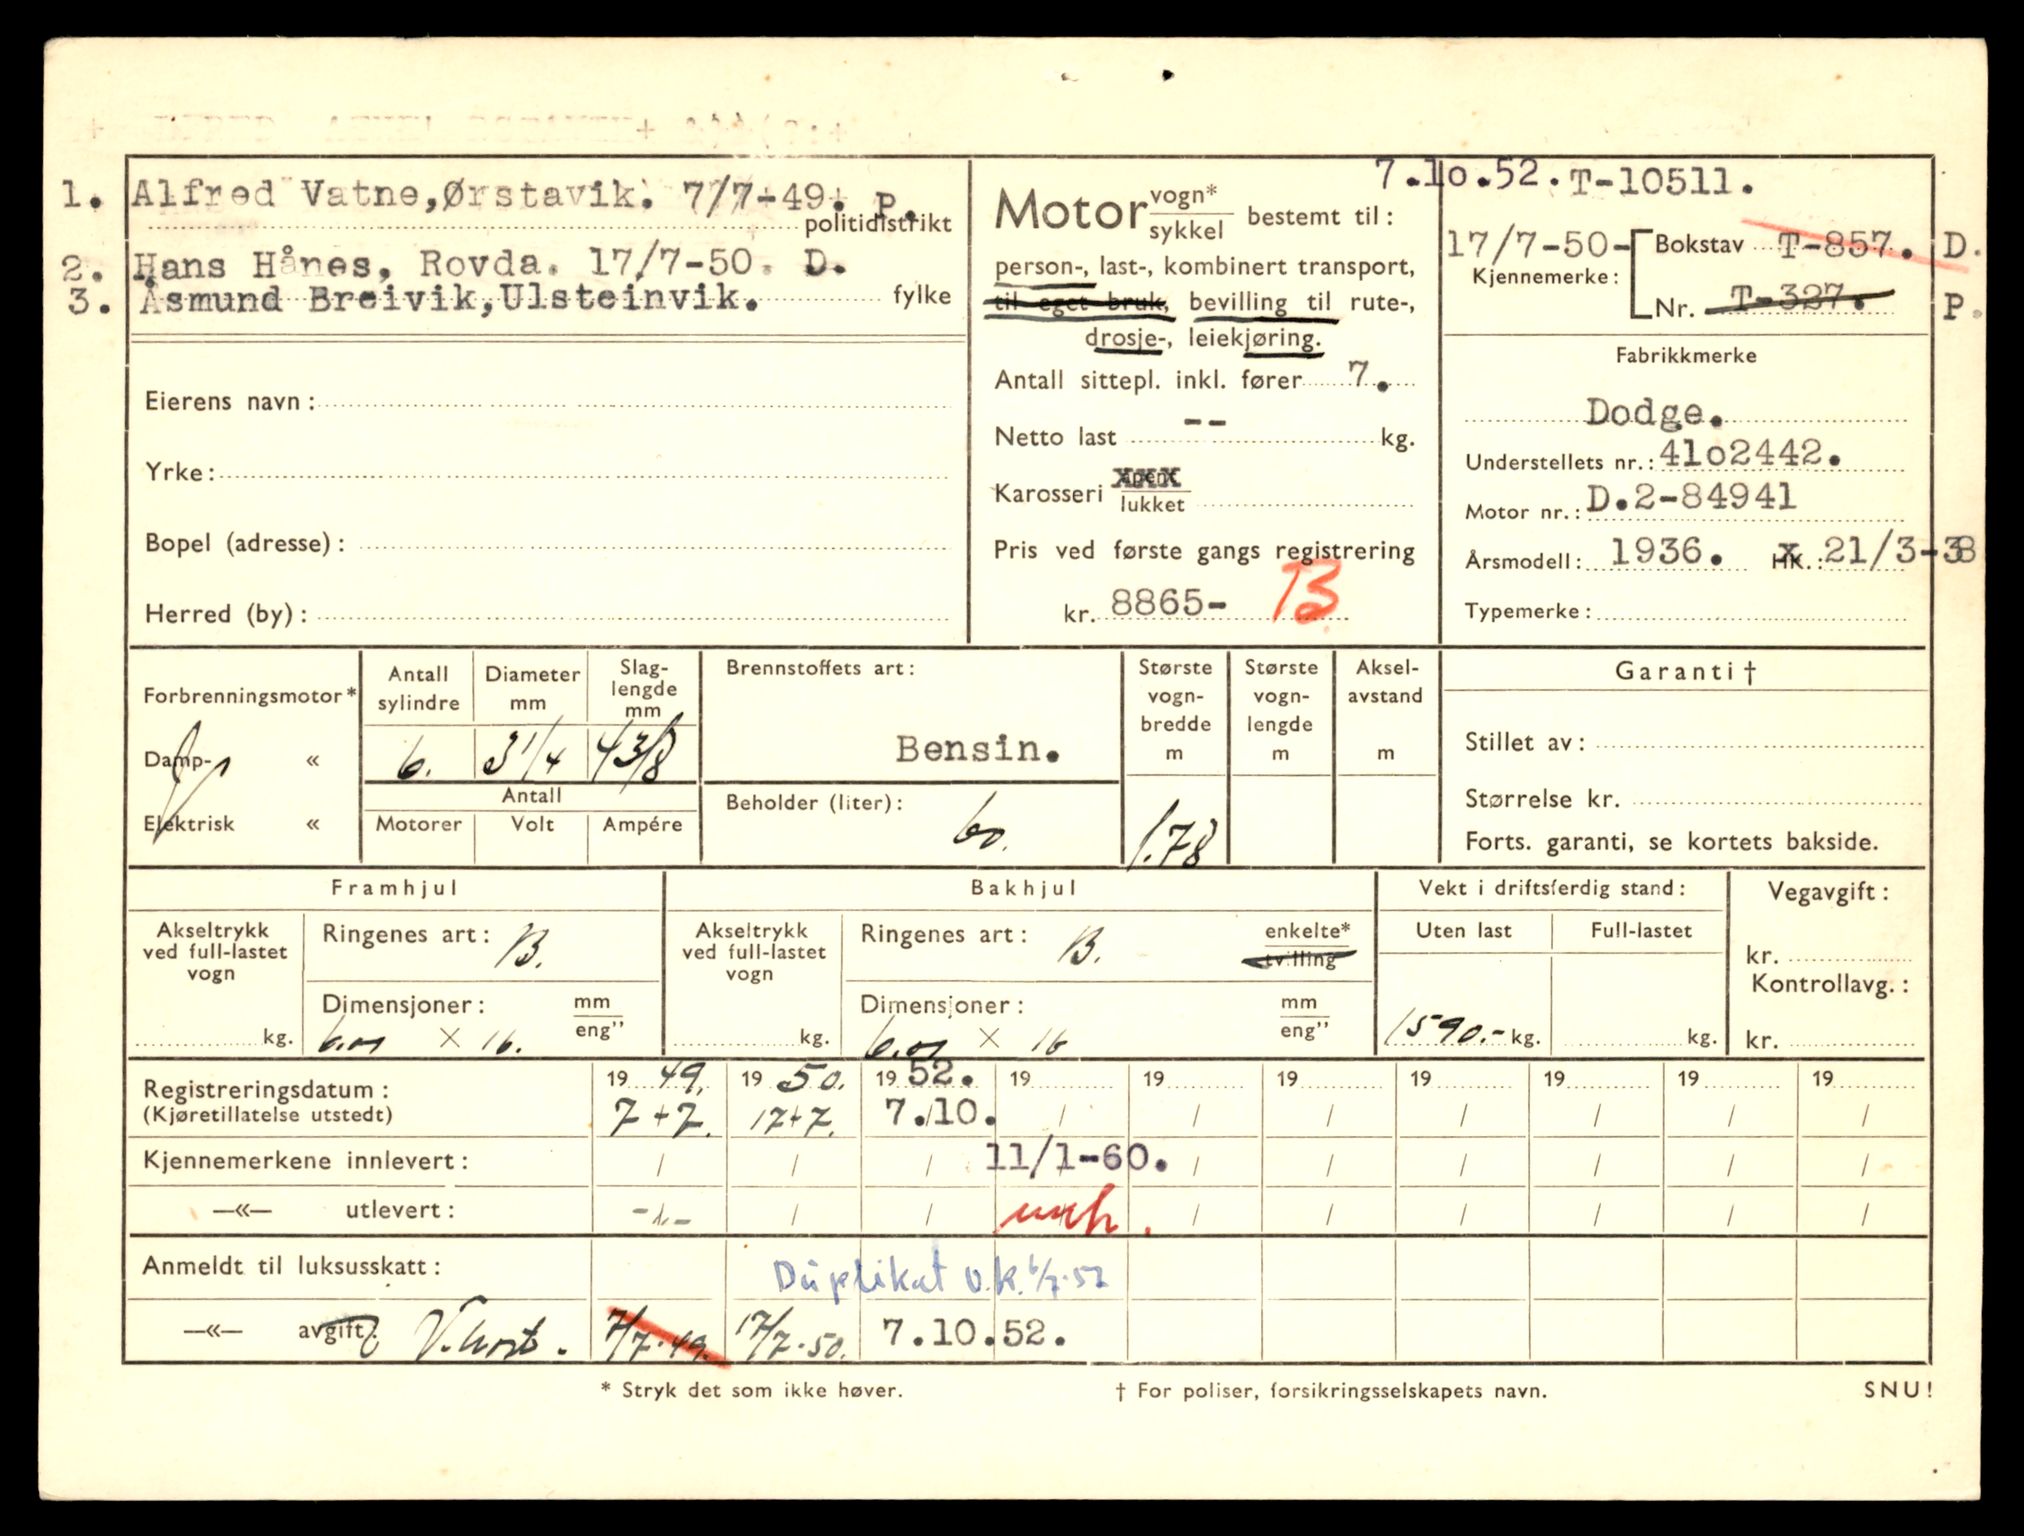 1. Alfred Vatne,Ørstavik. 7/7-49. P.
politidistrikt
2. Hans Hånes, Rovda. 17/7-50. D.
3. Åsmund Breivik,Ulsteinvik. fylke
Eierens navn:
Yrke:
Bopel (adresse):
Herred (by):
Motor vogn* sykkel bestemt til:
person-, last-, kombinert transport,
til eget bruk, bevilling til rute-,
drosje-, leiekjøring.
Antall sittepl. inkl. fører 7.
Netto last -- kg.
Karosseri åpent lukket
Pris ved første gangs registrering
kr. 8865- B
7.1o.52. T-10511.
17/7-50- Bokstav T-857. D.
Kjennemerke:
Nr. T-327. P.
Fabrikkmerke
Dodge.
Understellets nr.: 41o2442.
Motor nr.: D.2-84941
Årsmodell: 1936. x HK.: 21/3-38
Typemerke:
Forbrenningsmotor*
Damp- «
Elektrisk «
Antall sylindre 6.
Diameter mm 3 1/4
Slag-lengde mm 4 3/8
Antall
Motorer Volt Ampére
Brennstoffets art:
Bensin.
Beholder (liter): 60.
Største vogn-bredde m 1.78
Største vogn-lengde m
Aksel-avstand m
Garanti †
Stillet av:
Størrelse kr.
Forts. garanti, se kortets bakside.
Framhjul
Akseltrykk ved full-lastet vogn kg.
Ringenes art: B.
Dimensjoner: mm eng"
6.00 × 16.
Bakhjul
Akseltrykk ved full-lastet vogn kg.
Ringenes art: B. enkelte* tvilling
Dimensjoner: mm eng"
6.00 × 16
Vekt i driftsferdig stand:
Uten last Full-lastet
1590.- kg. kg.
Vegavgift:
kr.
Kontrollavg.:
kr.
Registreringsdatum: 19 49. 19 50. 19 52. 19 19 19 19 19 19 19
(Kjøretillatelse utstedt) 7+7. 17+7. 7.10. / / / / / / /
Kjennemerkene innlevert: / / / 11/1-60. / / / / / /
—«— utlevert: -"- / / / / / / / /
Anmeldt til luksusskatt: Duplikat v.k. 6/7.57
—«— avgift: 7/7.49. 17/7.50. 7.10.52.
* Stryk det som ikke høver. † For poliser, forsikringsselskapets navn. SNU!